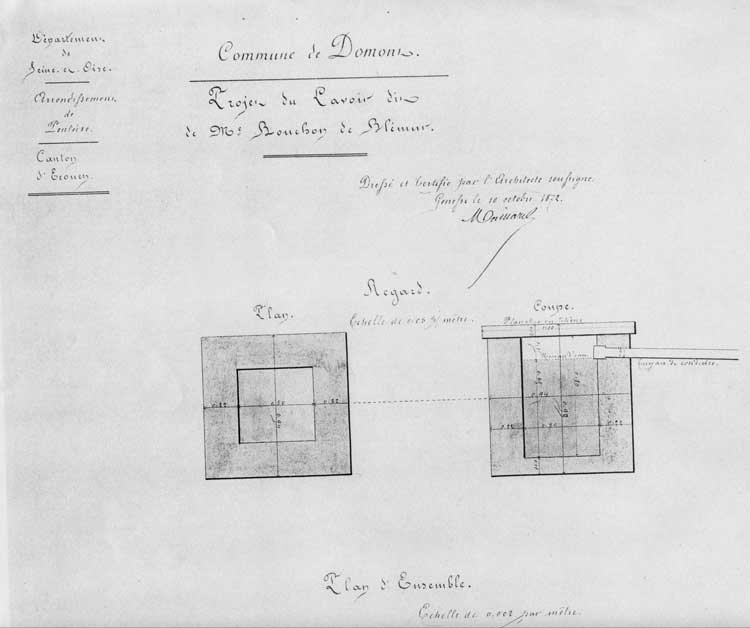 Département
de
Seine-et-Oise.
Arrondissement
de
Pontoise.
Canton
d'Ecouen.
Commune de Domont.
Projet du Lavoir dit
de Mr Bouchon de Blémur.
Dressé et Certifié par l'Architecte soussigné.
Gonesse le 10 octobre 1872.
Regard.
Echelle de 0.05 p/ mètre.
Plan.
0.22 0.50 0.22
Coupe.
Planche en chêne
Niveau d'eau
Tuyau de conduite.
0.94
0.22 0.50 0.22
Plan d'Ensemble.
Echelle de 0,002 par mètre.